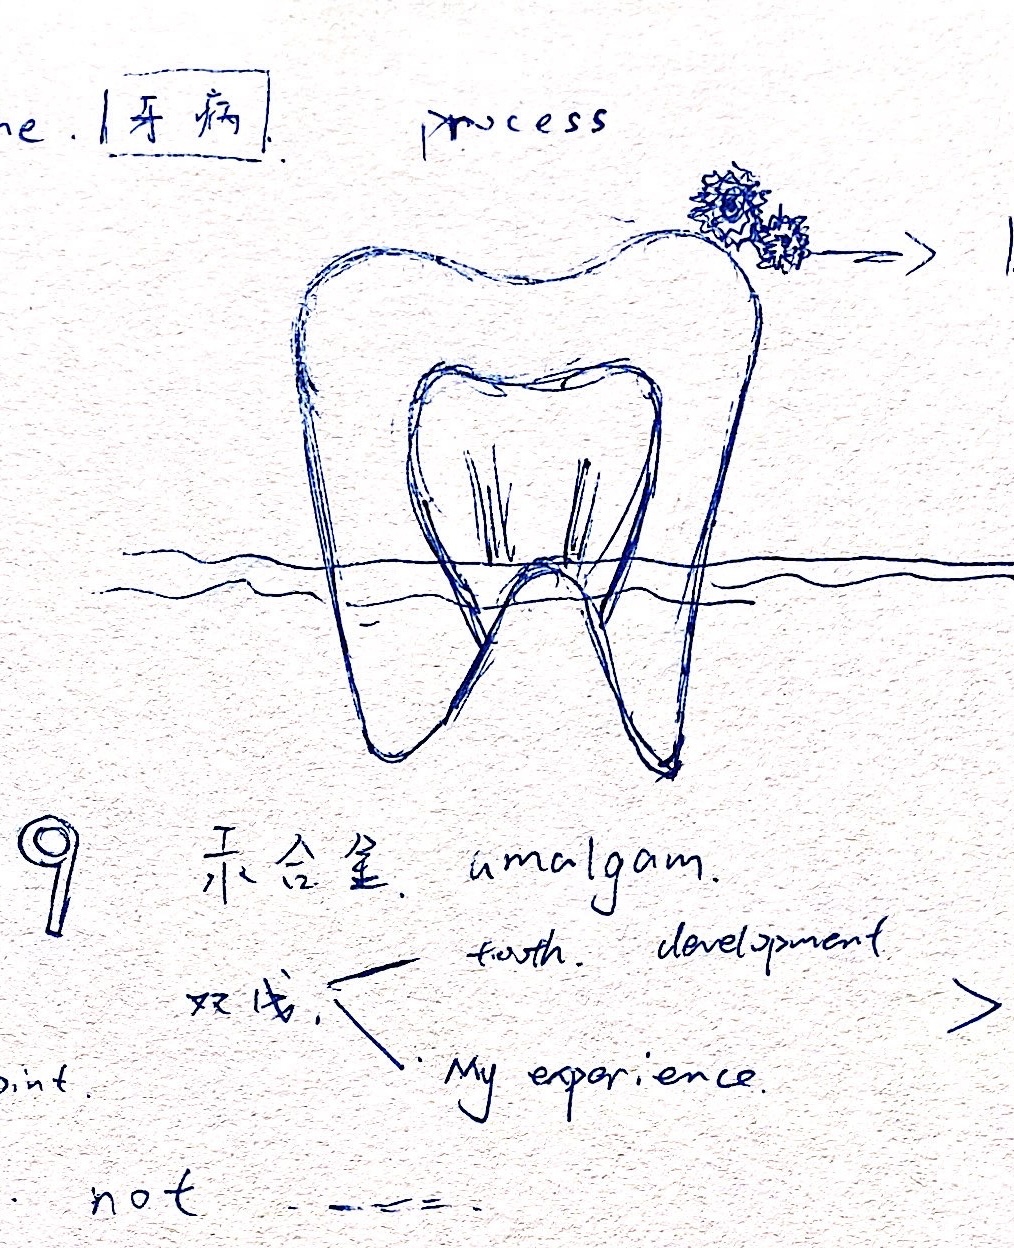 ne . 牙病. process
汞合金. amalgam.
tooth. development
双线.
My experience.
oint.
not